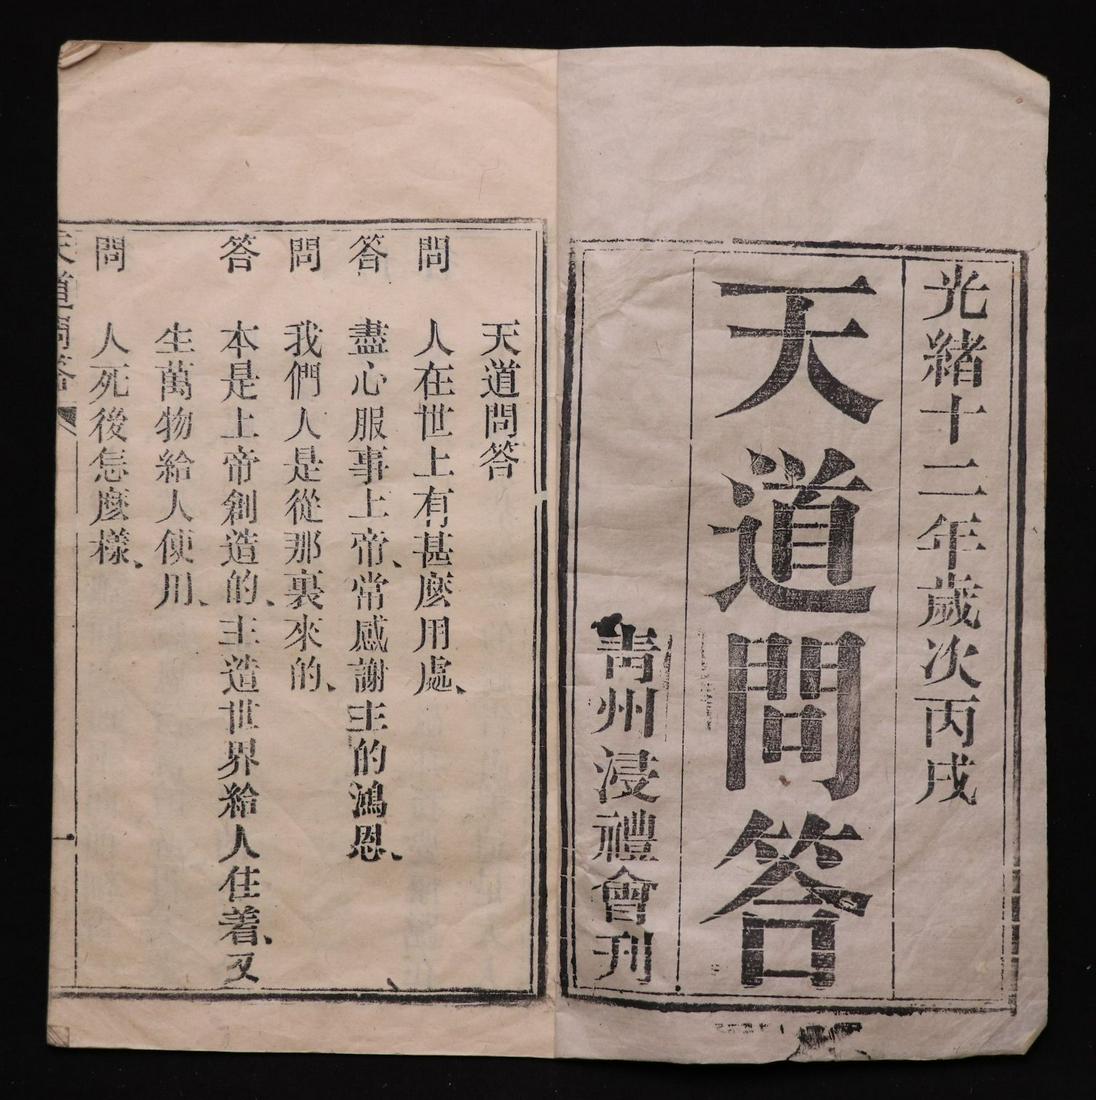 光緒十二年歲次丙戌
天道問答
靑州浸禮會刊
天道問答
問 人在世上有甚麽用處、
答 盡心服事上帝、常感謝主的鴻恩、
問 我們人是從那裏來的、
答 本是上帝創造的、主造世界給人住着、又
生萬物給人使用、
問 人死後怎麽樣、
天道問答 一